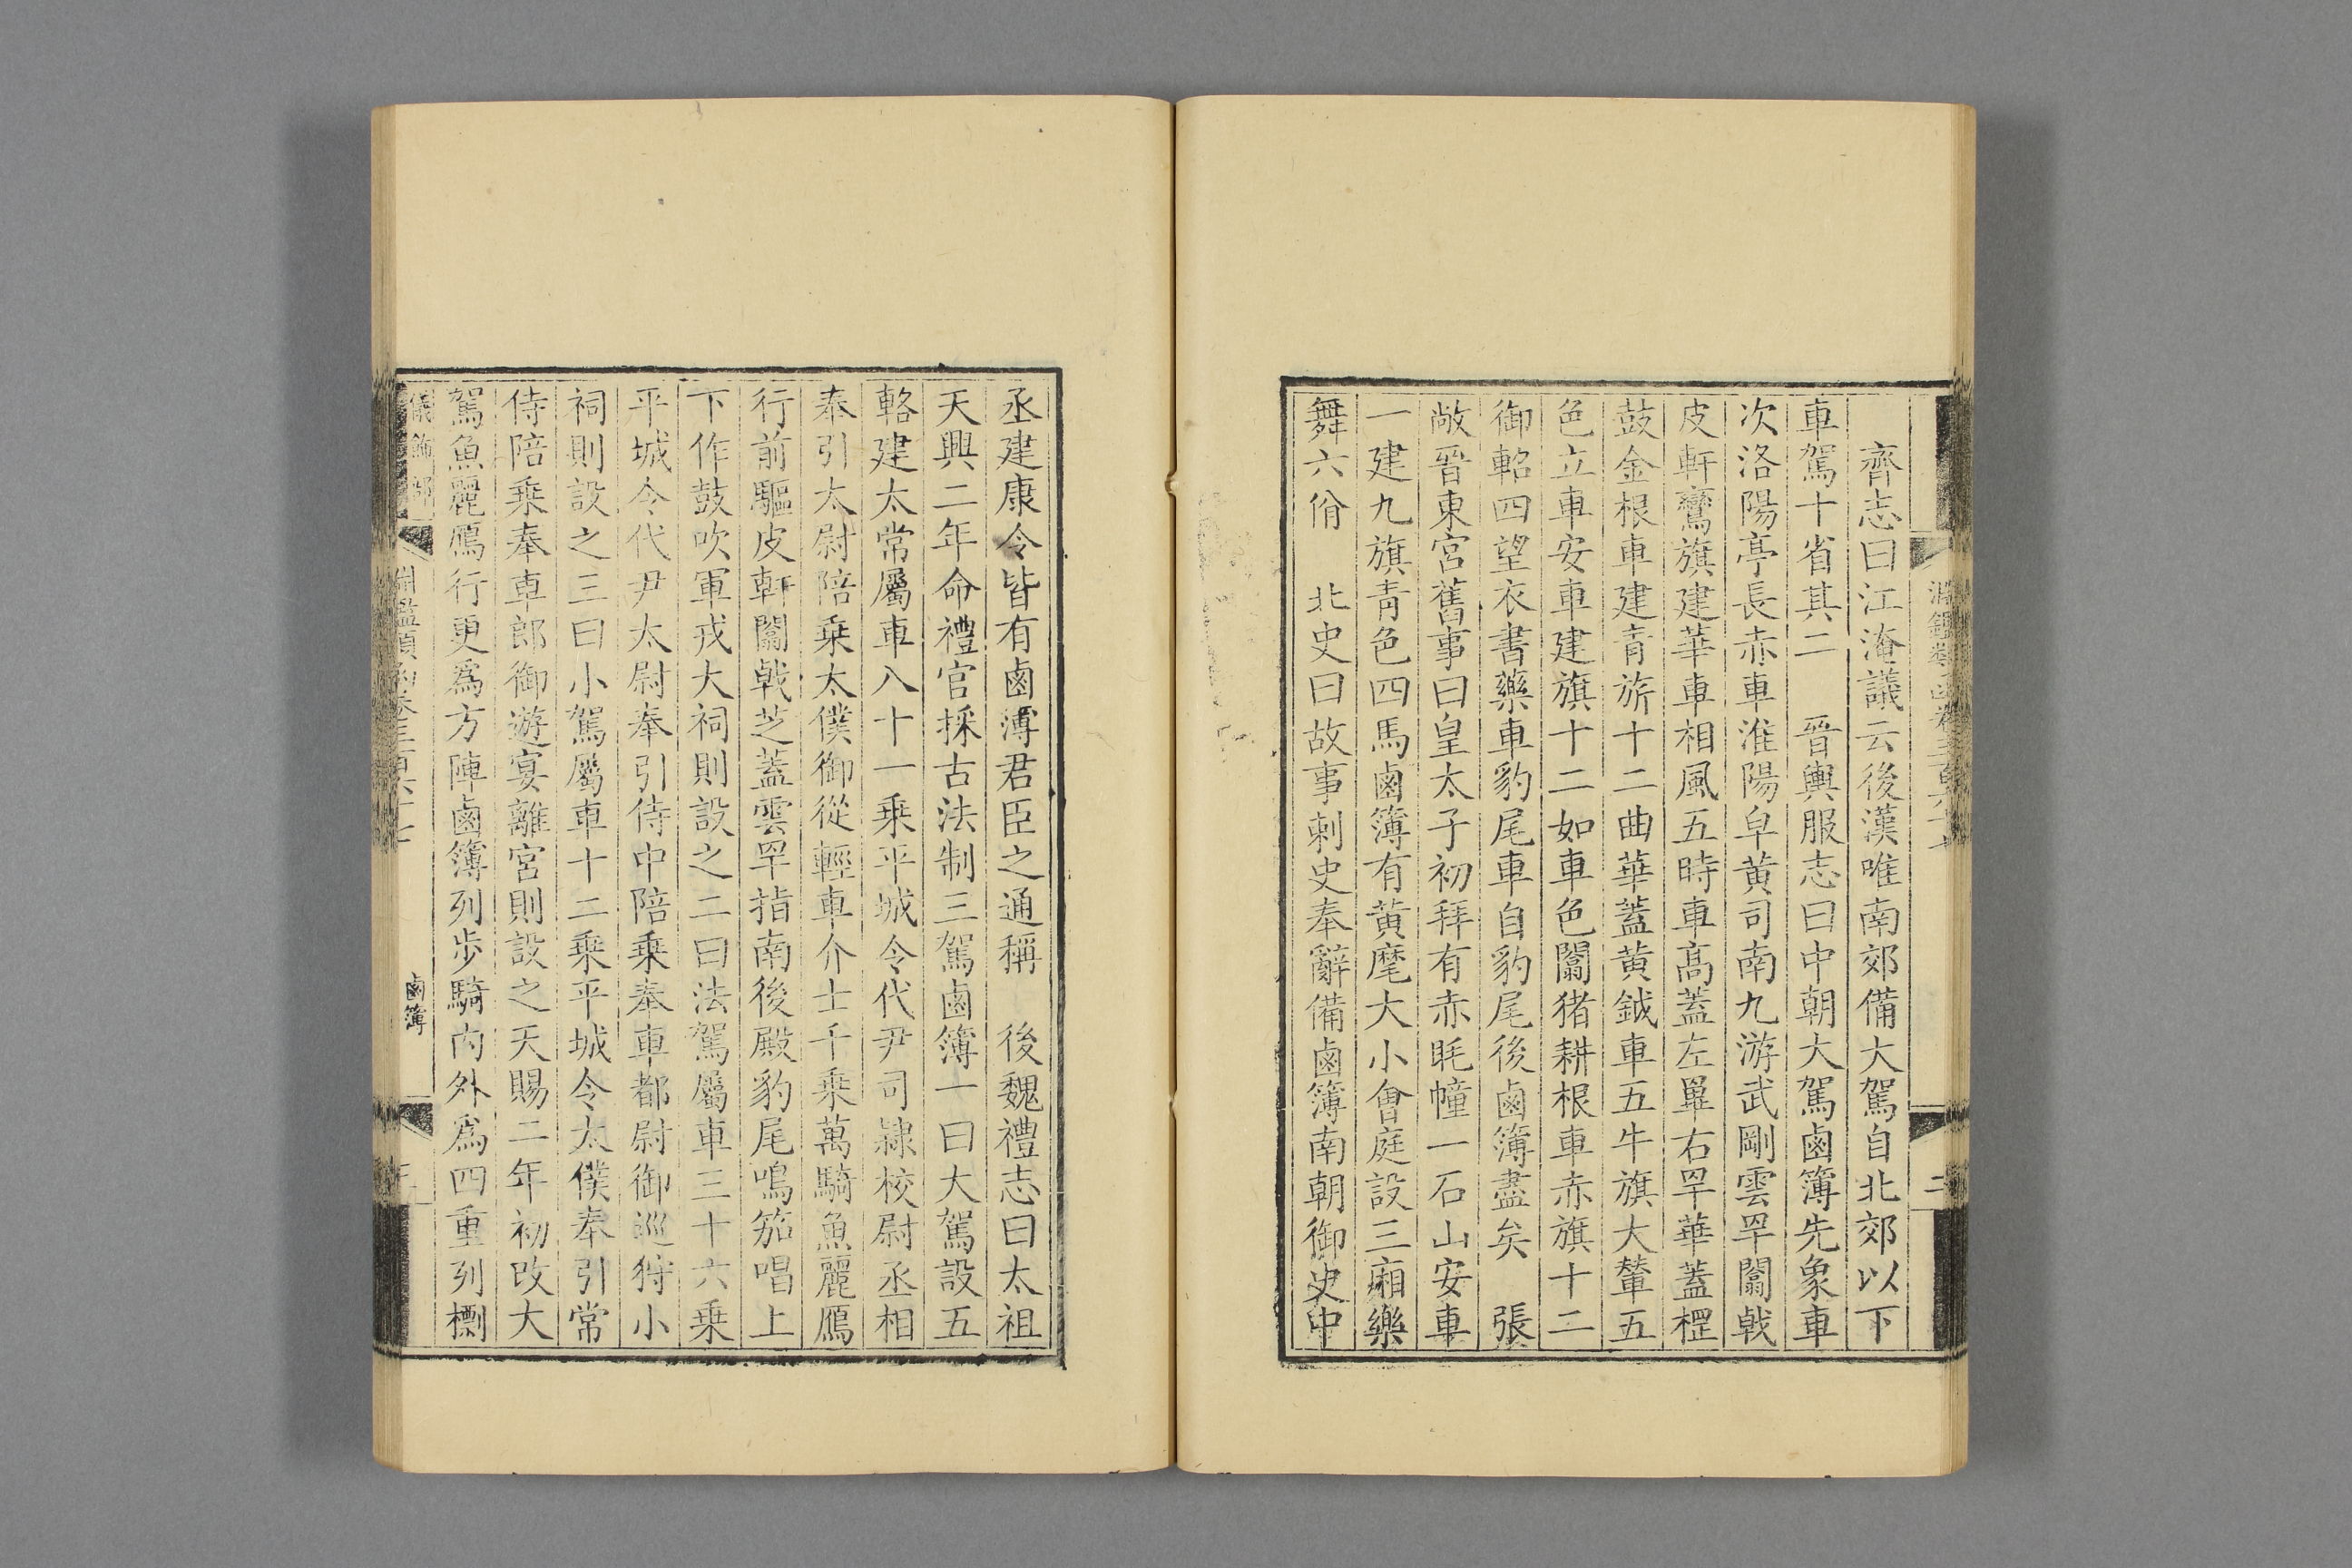 齊志曰江淹議云後漢唯南郊備大駕自北郊以下
車駕十省其二　晉輿服志曰中朝大駕鹵簿先象車
次洛陽亭長赤車淮陽皁黄司南九游武剛雲罕闟戟
皮軒鸞旗建華車相風五時車髙蓋左罼右罕華蓋㮣
鼓金根車建青旂十二曲華蓋黄鉞車五牛旗大輦五
色立車安車建旗十二如車色闟猪耕根車赤旗十二
御軺四望衣書藥車豹尾車自豹尾後鹵簿盡矣　張
敞晉東宮舊事曰皇太子初拜有赤眊幢一石山安車
一建九旗青色四馬鹵簿有黄麾大小會庭設三廂樂
舞六佾　北史曰故事刺史奉辭備鹵簿南朝御史中
丞建康令皆有鹵簿君臣之通稱　後魏禮志曰太祖
天興二年命禮官採古法制三駕鹵簿一曰大駕設五
輅建太常屬車八十一乗平城令代尹司隷校尉丞相
奉引太尉陪乗太僕御從輕車介士千乗萬騎魚麗鴈
行前驅皮軒闟戟芝蓋雲罕指南後殿豹尾鳴笳唱上
下作鼓吹軍戎大祠則設之二曰法駕屬車三十六乗
平城令代尹太尉奉引侍中陪乗奉車都尉御廵狩小
祠則設之三曰小駕屬車十二乗平城令太僕奉引常
侍陪乗奉車郎御遊宴離宮則設之天賜二年初改大
駕魚麗鴈行更爲方陣鹵簿列步騎内外爲四重列檦
鹵簿